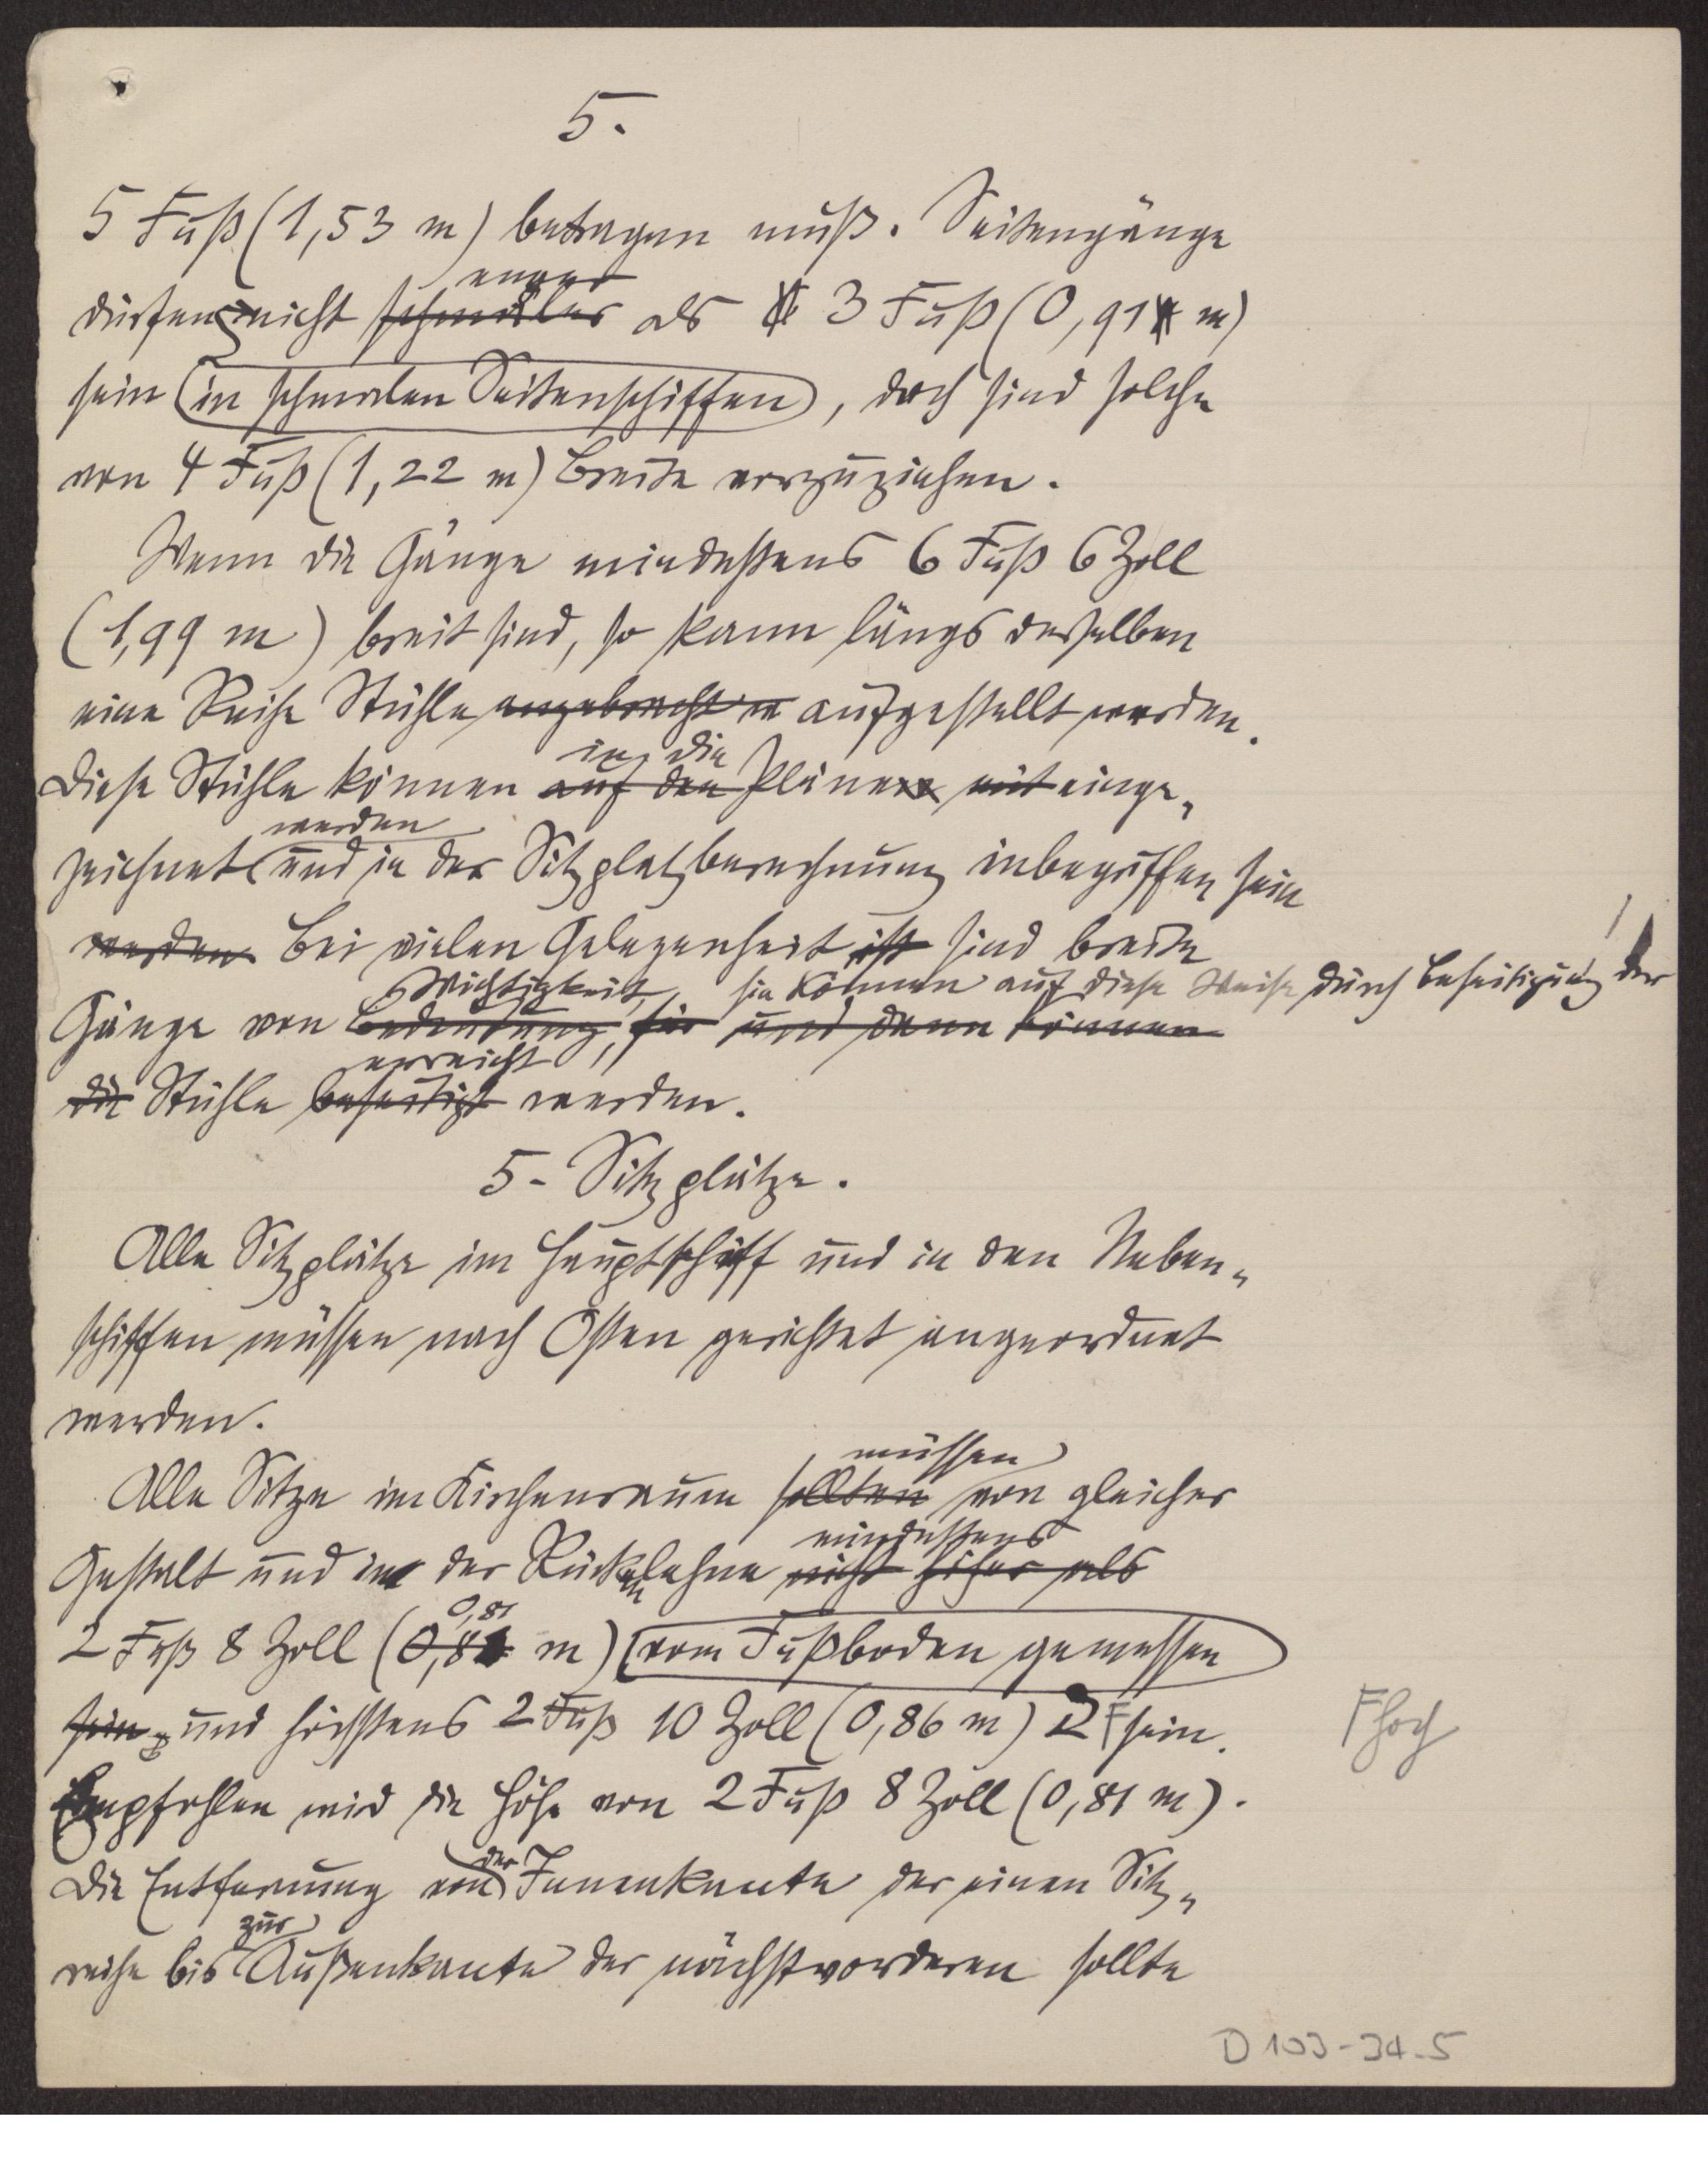 5.
5 Fuß (1,53 m) betragen muß. Seitengänge
enger
dürfen nicht schmäler als 3 Fuß (0,91 m)
sein (in schmalen Seitenschiffen), doch sind solche
von 4 Fuß (1,22 m) Breite vorzuziehen.
Wenn die Gänge mindestens 6 Fuß 6 Zoll
(1,99 m) breit sind, so kann längs derselben
eine Reihe Stühle angebracht w aufgestellt werden.
in die
Diese Stühle können auf den Pläne mit einge„
werden
zeichnet und in der Sitzplatzberechnung inbegriffen sein
werden. Bei vielen Gelegenheit ist sind breite
Wichtigkeit, sie können auf diese Weise durch Beseitigung der
Gänge von Bedeutung, für und dann können
erreicht
die Stühle beseitigt werden.
5- Sitzplätze.
Alle Sitzplätze im Hauptschiff und in den Neben„
schiffen müssen nach Osten gerichtet angeordnet
werden.
müssen
Alle Sitze im Kirchenraum sollten von gleicher
mindestens
Gestalt und in der Rückenlehne nicht höher als
0,81
2 Fuß 8 Zoll (0,81 m) (vom Fußboden gemessen
sein und höchstens 2 Fuß 10 Zoll (0,86 m) F sein.
F hoch
Empfohlen wird die Höhe von 2 Fuß 8 Zoll (0,81 m).
der
Die Entfernung von Innenkante der einen Sitz„
zur
reihe bis Außenkante der nächstvorderen sollte
D 103-34-5